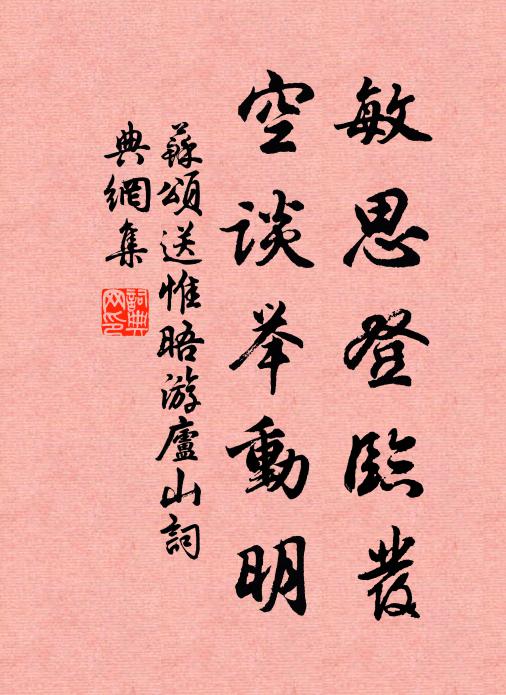 敏思登臨發
空談举動明
蘇頌送惟晤游廬山詞
典網集
詞典网印